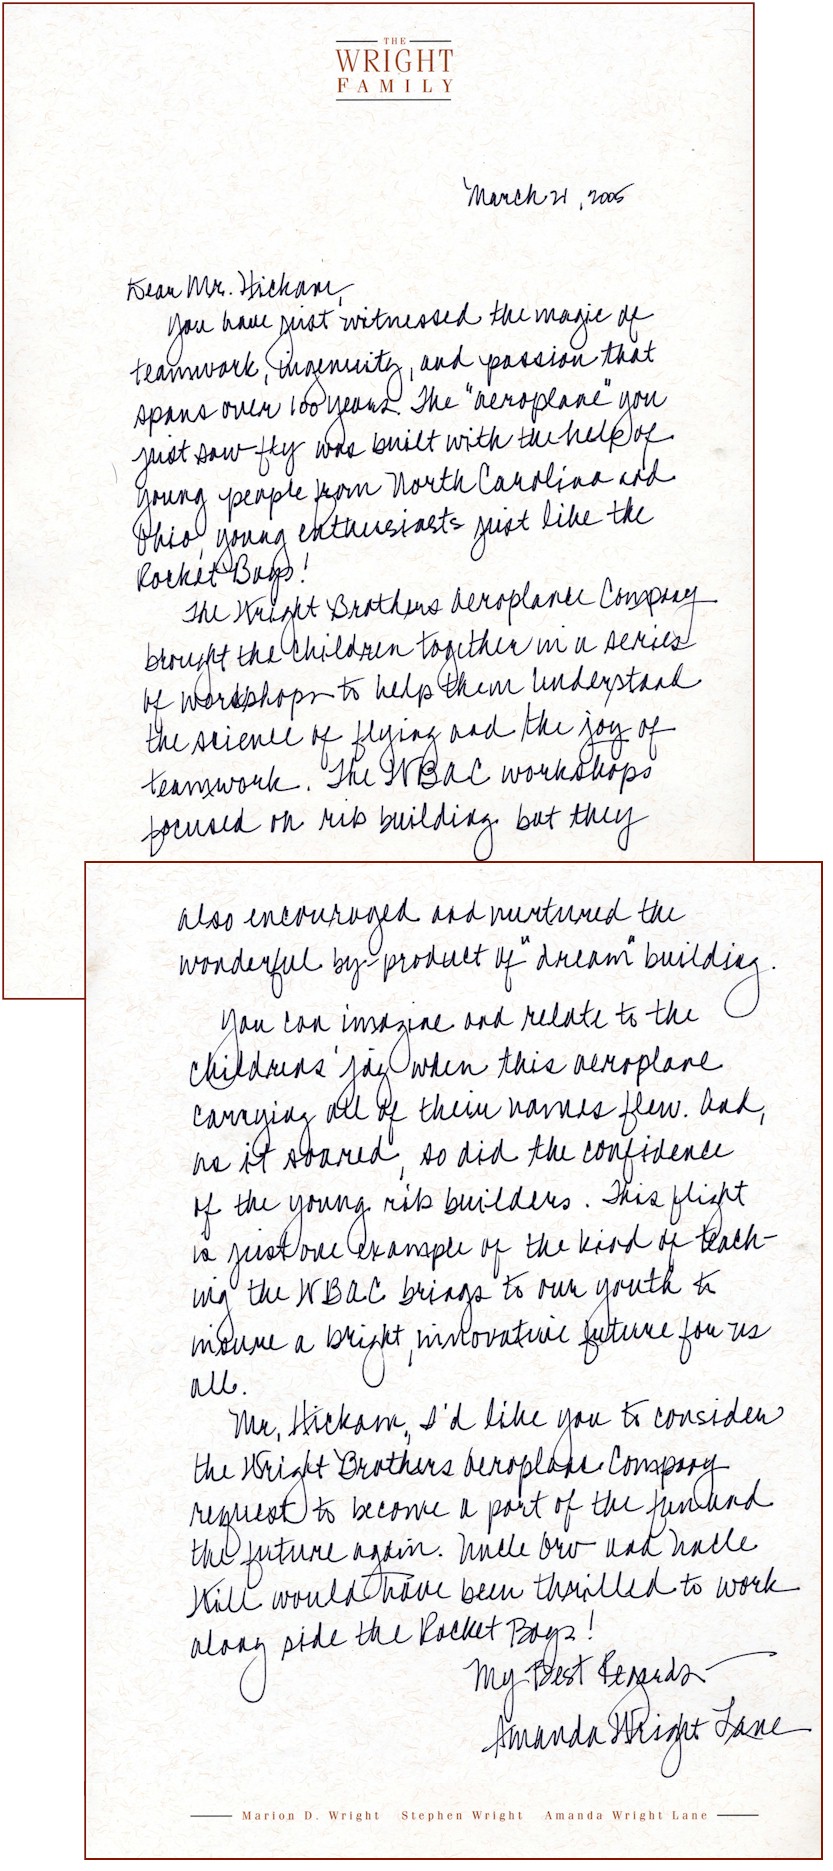 THE
WRIGHT
FAMILY
March 21, 2005
Dear Mr. Hickam,
You have just witnessed the magic of
teamwork, ingenuity, and passion that
spans over 100 years. The "aeroplane" you
just saw fly was built with the help of
young people from North Carolina and
Ohio, young enthusiasts just like the
Rocket Boys!
The Wright Brothers Aeroplane Company
brought the children together in a series
of workshops to help them understand
the science of flying and the joy of
teamwork. The WBAC workshops
focused on rib building but they
also encouraged and nurtured the
wonderful by-product of "dream" building.
You can imagine and relate to the
childrens' joy when this aeroplane
carrying all of their names flew. And,
as it soared, so did the confidence
of the young rib builders. This flight
is just one example of the kind of teach-
ing the WBAC brings to our youth to
insure a bright, innovative future for us
all.
Mr. Hickam, I'd like you to consider
the Wright Brothers Aeroplane Company
request to become a part of the fun and
the future again. Uncle Orv and Uncle
Will would have been thrilled to work
along side the Rocket Boys!
My Best Regards
Amanda Wright Lane
Marion D. Wright Stephen Wright Amanda Wright Lane